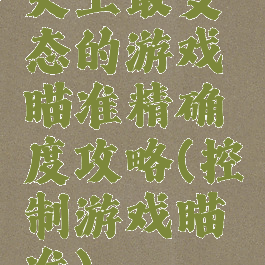 史上最变
态的游戏
瞄准精确
度攻略(控
制游戏瞄
准)